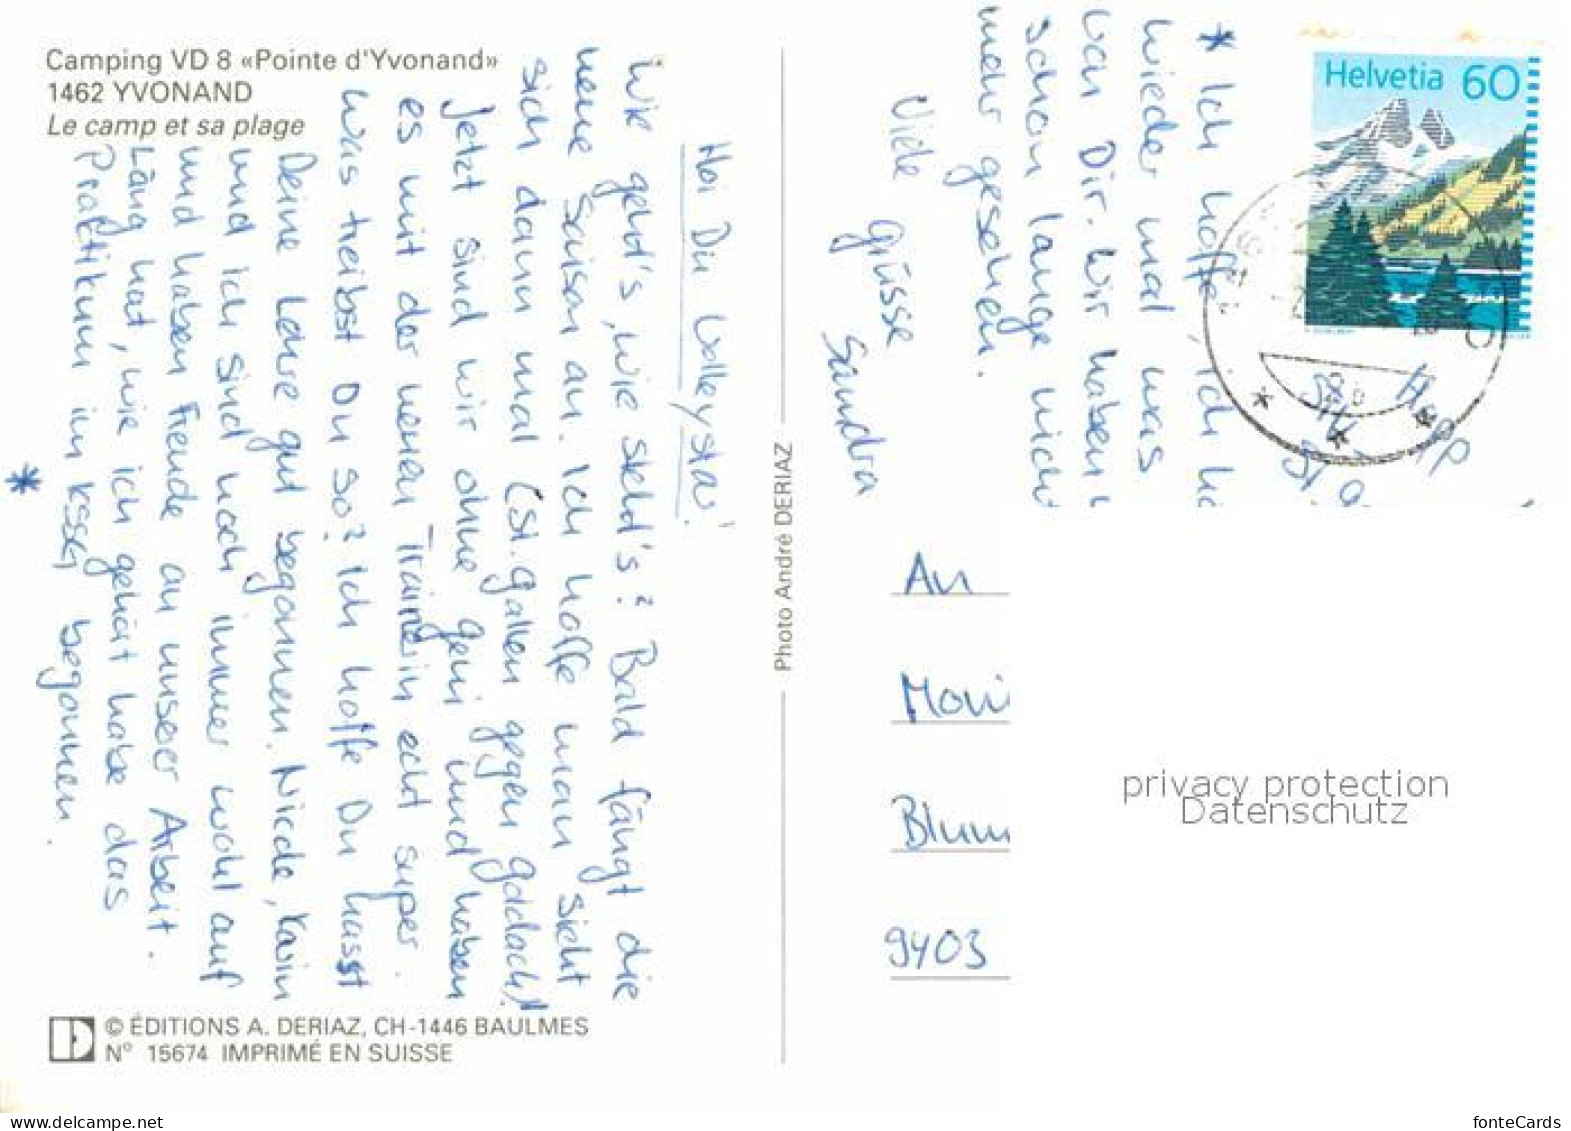 Camping VD 8 «Pointe d'Yvonand»
1462 YVONAND
Le camp et sa plage
Hoi Du Volleystar!
Wie geht's, wie steht's? Bald fängt die
neue Saison an. Ich hoffe man sieht
sich dann mal (St. Gallen gegen Goldach)!
Jetzt sind wir ohne Geni und haben
es mit der neuen Trainerin echt super.
Was treibst Du so? Ich hoffe Du hast
Deine Lehre gut begonnen. Nicole, Karin
und ich sind noch immer wohl auf
und haben Freude an unserer Arbeit.
Läng hat, wie ich gehört habe das
Praktikum im KSSG begonnen.
*
* Ich hoffe, ich hö
wieder mal was
von Dir. Wir haben
schon lange nicht
mehr gesehen.
Viele
Grüsse
Sandra
Helvetia 60
Photo André DERIAZ
An
Moni
Blum
9403
privacy protection
Datenschutz
© ÉDITIONS A. DERIAZ, CH-1446 BAULMES
N° 15674 IMPRIMÉ EN SUISSE
fonteCards